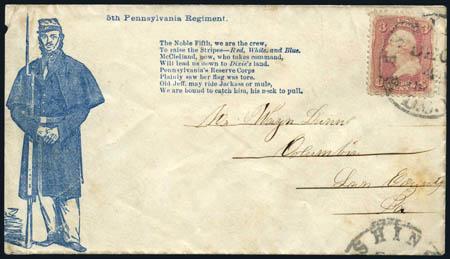 5th Pennsylvania Regiment.
The Noble Fifth, we are the crew,
To raise the Stripes—Red, White, and Blue.
McClelland, now, who takes command,
Will lead us down to Dixie's land.
Pennsylvania's Reserve Corps
Plainly saw her flag was tore.
Old Jeff. may ride Jackass or mule,
We are bound to catch him, his neck to pull.
3
D.C.
Columbia
Pa
SHIN